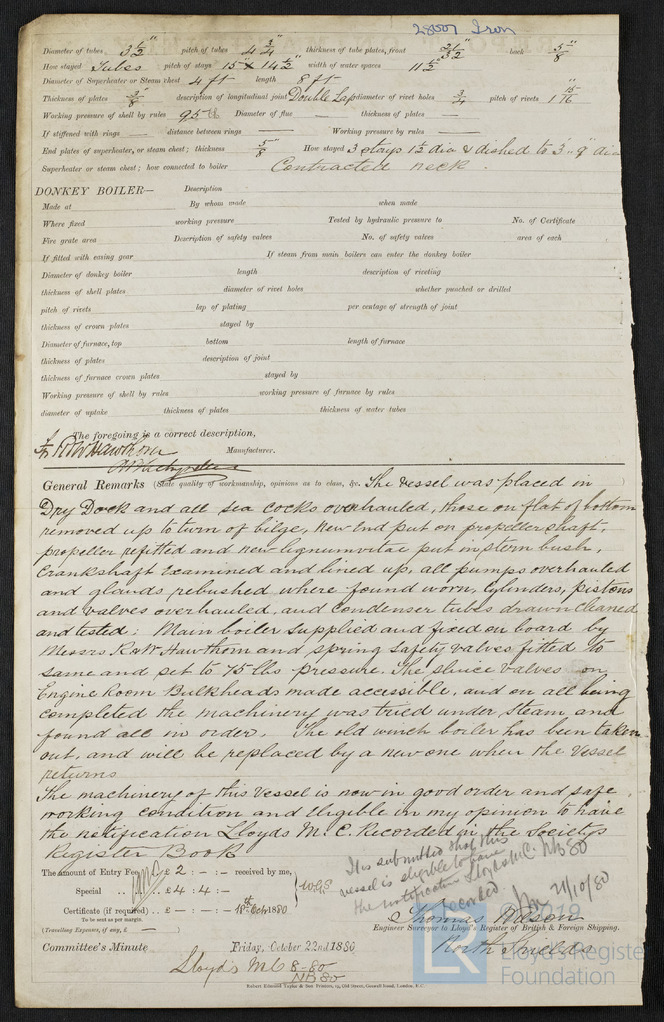 28007 Iron
Diameter of tubes 3 1/2" pitch of tubes 4 3/4" thickness of tube plates, front 21/32 back 5/8"
How stayed Tubes pitch of stays 15" x 14 1/2" width of water spaces 11 1/2
Diameter of Superheater or Steam chest 4 ft length 8 ft
Thickness of plates 3/8" description of longitudinal joint Double Lap diameter of rivet holes 3/4 pitch of rivets 1 15/16"
Working pressure of shell by rules 95 lb Diameter of flue — thickness of plates —
If stiffened with rings — distance between rings — Working pressure by rules —
End plates of superheater, or steam chest; thickness 5/8" How stayed 3 stays 1 1/2 dia & dished to 3"9" dia
Superheater or steam chest; how connected to boiler Contracted neck.
DONKEY BOILER— Description
Made at By whom made when made
Where fixed working pressure Tested by hydraulic pressure to No. of Certificate
Fire grate area Description of safety valves No. of safety valves area of each
If fitted with easing gear If steam from main boilers can enter the donkey boiler
Diameter of donkey boiler length description of riveting
thickness of shell plates diameter of rivet holes whether punched or drilled
pitch of rivets lap of plating per centage of strength of joint
thickness of crown plates stayed by
Diameter of furnace, top bottom length of furnace
thickness of plates description of joint
thickness of furnace crown plates stayed by
Working pressure of shell by rules working pressure of furnace by rules
diameter of uptake thickness of plates thickness of water tubes
The foregoing is a correct description,
R&W Hawthorn Manufacturer.
General Remarks (State quality of workmanship, opinions as to class, &c. The Vessel was placed in
Dry Dock and all sea cocks overhauled, those on flat of bottom
removed up to turn of bilge, New End put on propeller shaft,
propeller refitted and new lignumvitae put in stern bush,
Crankshaft examined and lined up, all pumps overhauled
and glands rebushed where found worn, Cylinders, pistons
and valves overhauled, and Condenser tubes drawn cleaned
and tested: Main boiler supplied and fixed on board by
Messrs R&W Hawthorn and spring safety valves fitted to
same and set to 75 lbs pressure. The sluice valves on
Engine Room Bulkheads made accessible, and on all being
completed the machinery was tried under steam and
found all in order. The old winch boiler has been taken
out, and will be replaced by a new one when the Vessel
returns
The machinery of this Vessel is now in good order and safe
working condition and Eligible in my opinion to have
the notification Lloyds M.C. Recorded in the Society's
Register Book
It is submitted that this
vessel is eligible to have
the notification Lloyds MC NB 80
recorded 21/10/80
The amount of Entry Fee £ 2 : - : - received by me,
Special £ 4 : 4 : -
Certificate (if required) £ - : - : - 18th Oct 1880
To be sent as per margin.
(Travelling Expenses, if any, £ —)
Thomas Wilson
Engineer Surveyor to Lloyd's Register of British & Foreign Shipping.
North Shields
Committee's Minute Friday, October 22nd 1880
Lloyd's MC 8-80
NB 80
Robert Edmund Taylor & Son Printers, 19, Old Street, Goswell Road, London, E.C.
©2019
LR
Lloyd's Register
Foundation